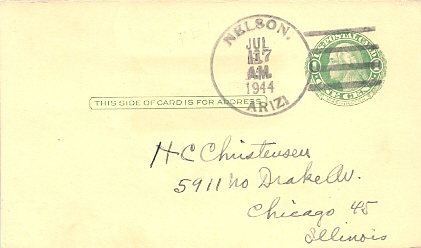 NELSON,
JUL
17
AM.
1944
ARIZ.
THIS SIDE OF CARD IS FOR ADDRESS
H C Christensen
5911 No Drake Av.
Chicago 45
Illinois